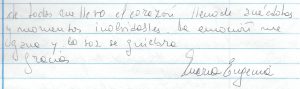 de todos me llevo el corazón lleno de anécdotas
y momentos inolvidables la emoción me
ga y la voz se quiebra
Gracias
María Eugenia